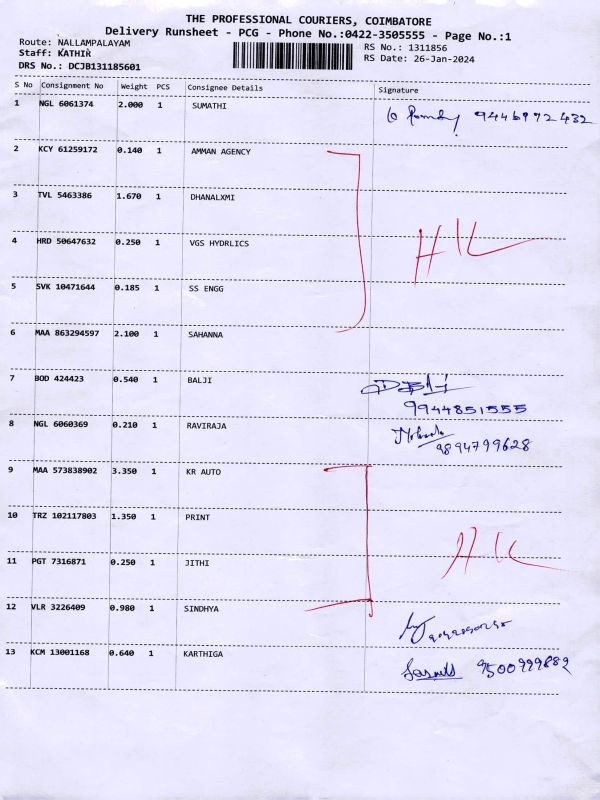 THE PROFESSIONAL COURIERS, COIMBATORE
Delivery Runsheet - PCG - Phone No.:0422-3505555 - Page No.:1
Route: NALLAMPALAYAM
Staff: KATHIR
DRS No.: DCJB131185601
RS No.: 1311856
RS Date: 26-Jan-2024
S No Consignment No Weight PCS Consignee Details Signature
1 NGL 6061374 2.000 1 SUMATHI
2 KCY 61259172 0.140 1 AMMAN AGENCY
3 TVL 5463386 1.670 1 DHANALXMI
4 HRD 50647632 0.250 1 VGS HYDRLICS
5 SVK 10471644 0.185 1 SS ENGG
6 MAA 863294597 2.100 1 SAHANNA
7 BOD 424423 0.540 1 BALJI
9944851555
8 NGL 6060369 0.210 1 RAVIRAJA
9894799628
9 MAA 573838902 3.350 1 KR AUTO
10 TRZ 102117803 1.350 1 PRINT
11 PGT 7316871 0.250 1 JITHI
12 VLR 3226409 0.980 1 SINDHYA
13 KCM 13001168 0.640 1 KARTHIGA